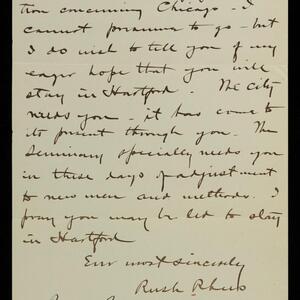 tion concerning Chicago - I
cannot presume to go - but
I do wish to tell you of my
eager hope that you will
stay in Hartford. The City
needs you - it has come to
its present through you. The
Seminary specially needs you
in these days of adjustment
to new men and methods. I
pray you may be led to stay
in Hartford
Ever most sincerely
Rush Rhees